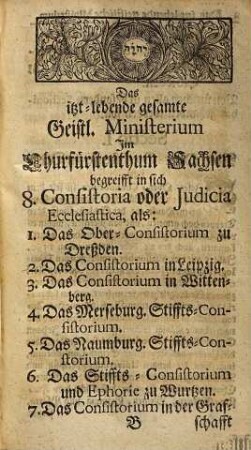 יהוה
Das
itzt-lebende gesamte
Geistl. Ministerium
Im
Churfürstenthum Sachsen
begreifft in sich
8. Consistoria oder Judicia
Ecclesiastica, als:
1. Das Ober-Consistorium zu
Dreßden.
2. Das Consistorium in Leipzig.
3. Das Consistorium in Witten-
berg.
4. Das Merseburg. Stiffts-Con-
sistorium.
5. Das Naumburg. Stiffts-Con-
storium.
6. Das Stiffts-Consistorium
und Ephorie zu Wurtzen.
7. Das Consistorium in der Graf-
B schafft